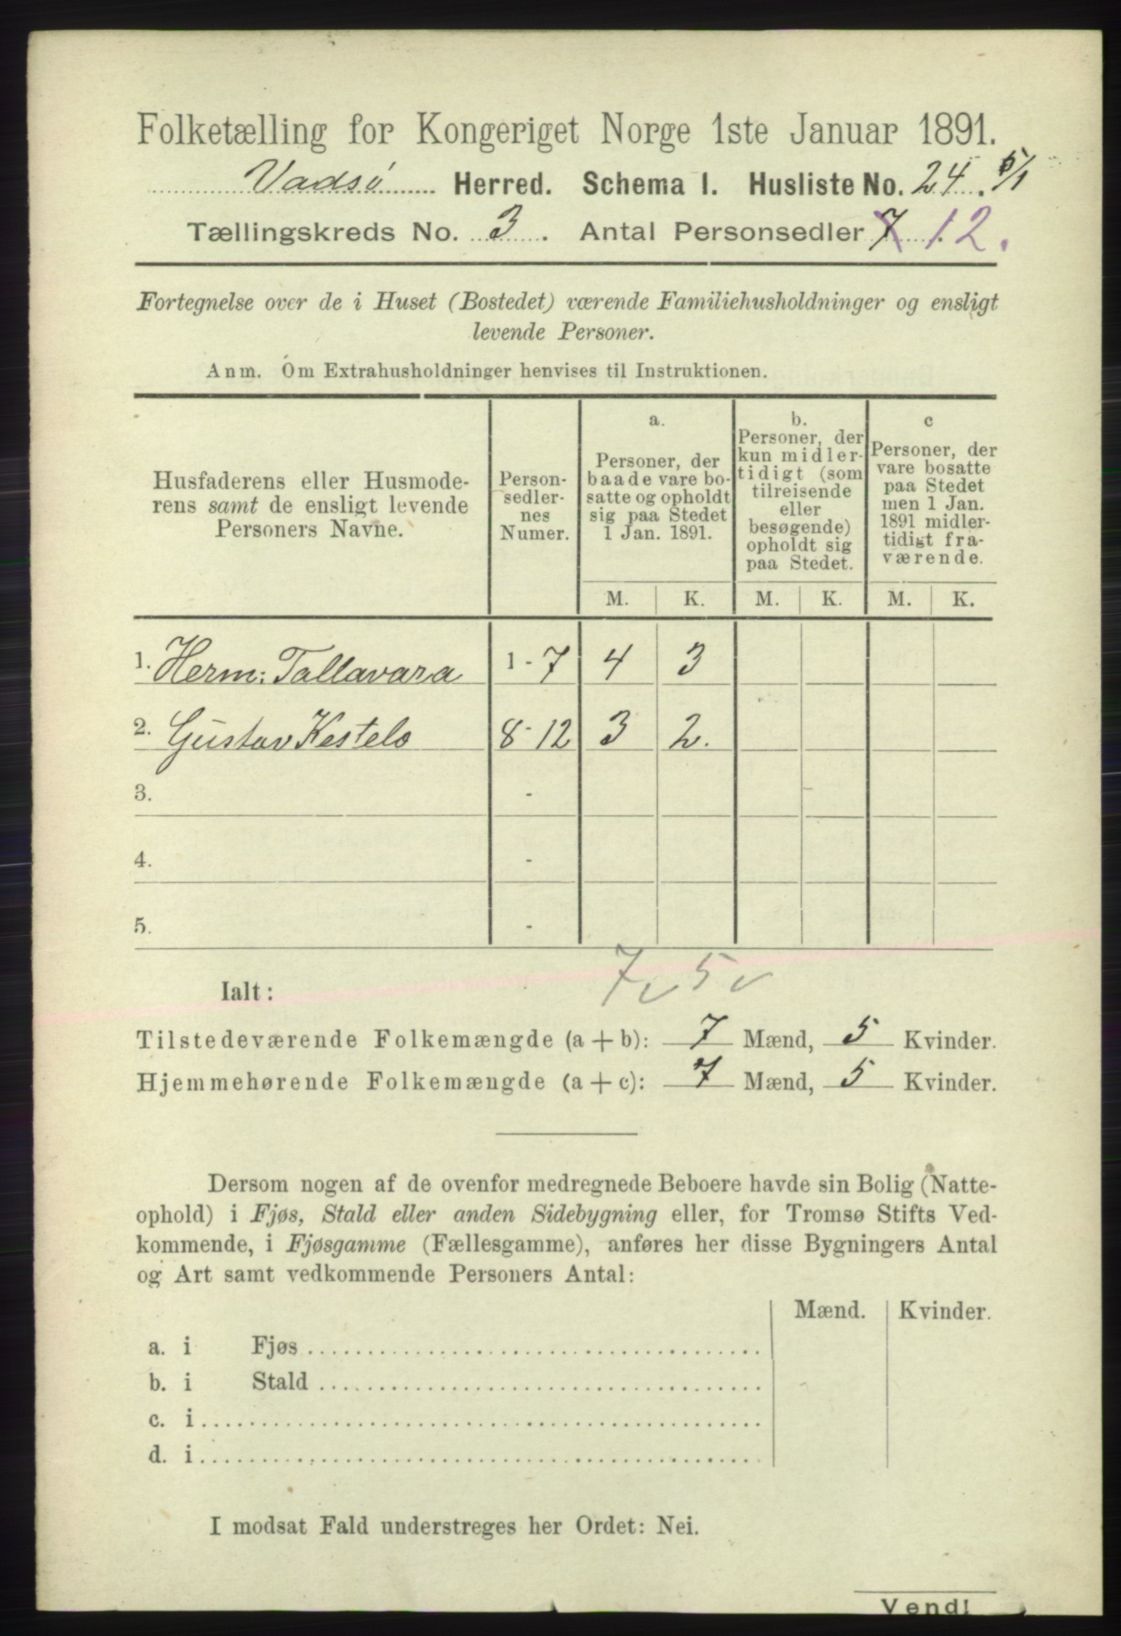 Folketælling for Kongeriget Norge 1ste Januar 1891.
Vadsø Herred. Schema I. Husliste No. 24. 5/1
Tællingskreds No. 3. Antal Personsedler 7 12.
Fortegnelse over de i Huset (Bostedet) værende Familiehusholdninger og ensligt
levende Personer.
Anm. Om Extrahusholdninger henvises til Instruktionen.
Husfaderens eller Husmode-
rens samt de ensligt levende
Personers Navne.
Person-
sedler-
nes
Numer.
a.
Personer, der
baade vare bo-
satte og opholdt
sig paa Stedet
1 Jan. 1891.
b.
Personer, der
kun midler-
tidigt (som
tilreisende
eller
besøgende)
opholdt sig
paa Stedet.
c
Personer, der
vare bosatte
paa Stedet
men 1 Jan.
1891 midler-
tidigt fra-
værende.
M. K. M. K. M. K.
1. Herm: Tallavara 1 - 7 4 3
2. Gustav Kestelo 8 - 12 3 2.
3. -
4. -
5. -
7 5
Ialt:
Tilstedeværende Folkemængde (a + b): 7 Mænd, 5 Kvinder.
Hjemmehørende Folkemængde (a + c): 7 Mænd, 5 Kvinder.
Dersom nogen af de ovenfor medregnede Beboere havde sin Bolig (Natte-
ophold) i Fjøs, Stald eller anden Sidebygning eller, for Tromsø Stifts Ved-
kommende, i Fjøsgamme (Fællesgamme), anføres her disse Bygningers Antal
og Art samt vedkommende Personers Antal:
Mænd. Kvinder.
a. i Fjøs
b. i Stald
c. i
d. i
I modsat Fald understreges her Ordet: Nei.
Vend!